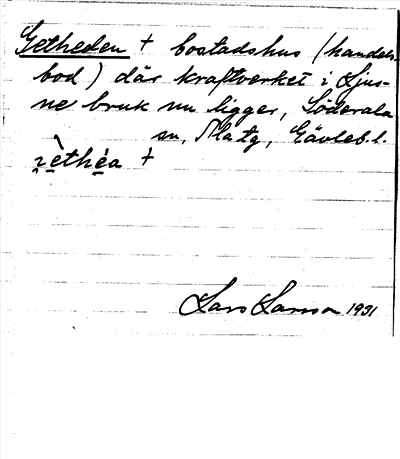 Getheden + bostadshus (handels-
bod) där kraftverket i Ljus-
ne bruk nu ligger, Söderala
sn, Mátg, Gävleb.l.
+
Lars Larsson 1931